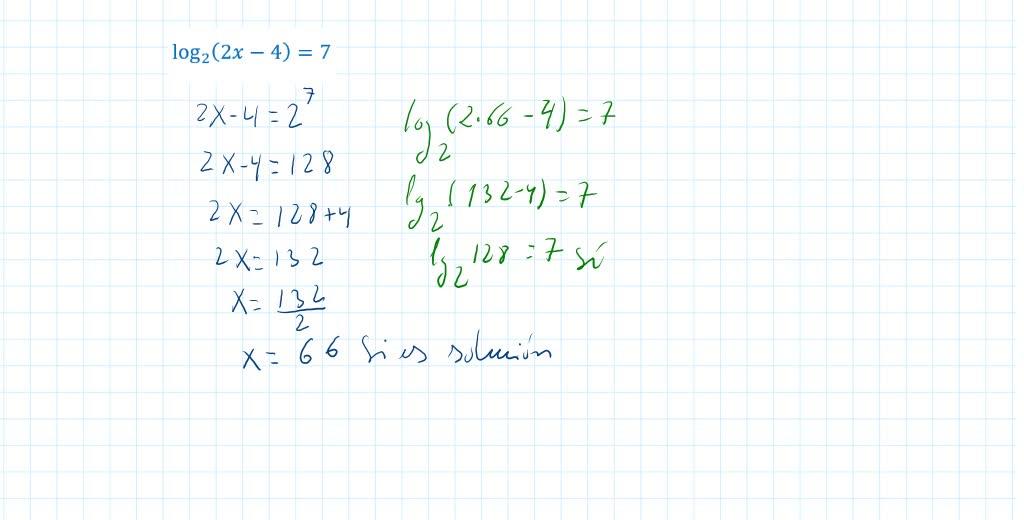 log₂(2x − 4) = 7
2x-4=2⁷
2x-4=128
2x=128+4
2x=132
x=132/2
x=66 si es solución
log₂(2·66-4)=7
lg₂(132-4)=7
lg₂128=7 sí